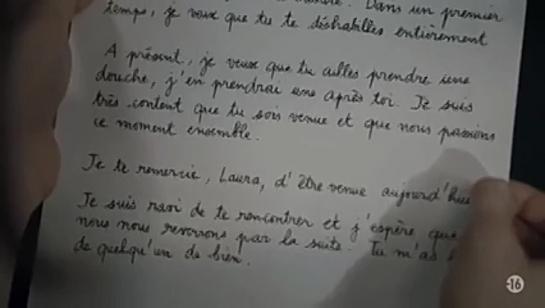 Dans un premier
temps, je veux que tu te déshabilles entièrement
A présent, je veux que tu ailles prendre une
douche, j'en prendrai une après toi. Je suis
très content que tu sois venue et que nous passions
ce moment ensemble.
Je te remercie, Laura, d'être venue aujourd'hui
Je suis ravi de te rencontrer et j'espère que
nous nous reverrons par la suite. Tu m'as
de quelqu'un de bien.
-16